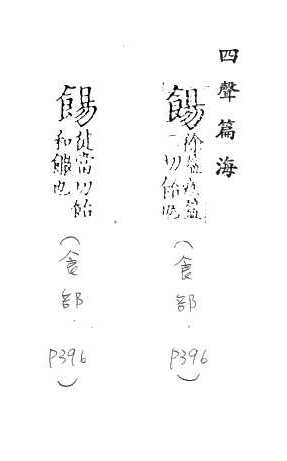 四聲篇海
餳
徐盈疾盈
二切飴也
(食部.
P396)
餳
徒當切飴
和饊也
(食部.
P396)